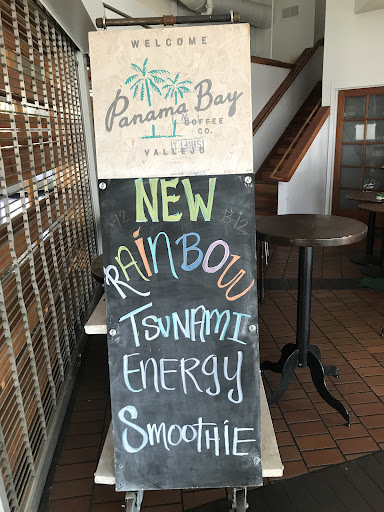 WELCOME
Panama Bay
COFFEE
CO.
VALLEJO
NEW
RAINBOW
TSUNAMI
ENERGY
SMOOTHIE